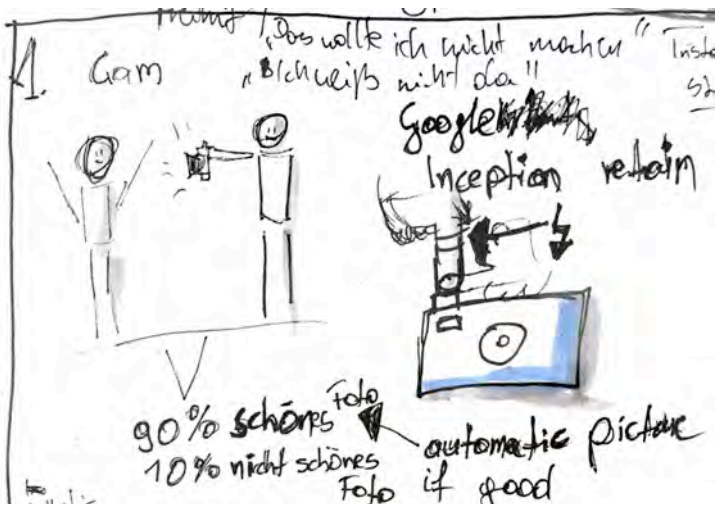 „Das wollte ich nicht machen"
1. Cam
nicht da"
Google
Inception retrain
90% schönes Foto
10% nicht schönes Foto
automatic picture
if good